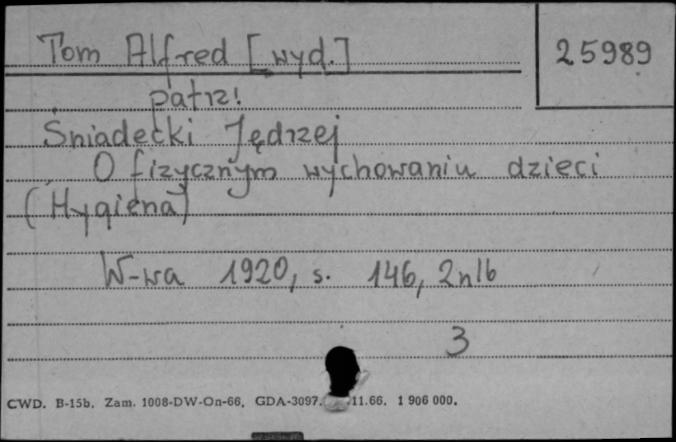 Tom Alfred [wyd.]
25989
patrz!
Śniadecki Jędrzej
O fizycznym wychowaniu dzieci
(Hygiena)
W-wa 1920, s. 146, 2nlb
3
CWD. B-15b. Zam. 1008-DW-On-66. GDA-3097. 11.66. 1 906 000.